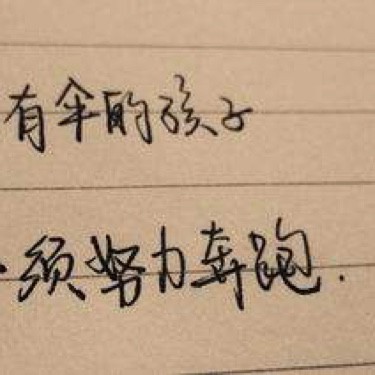 有伞的孩子
须努力奔跑.